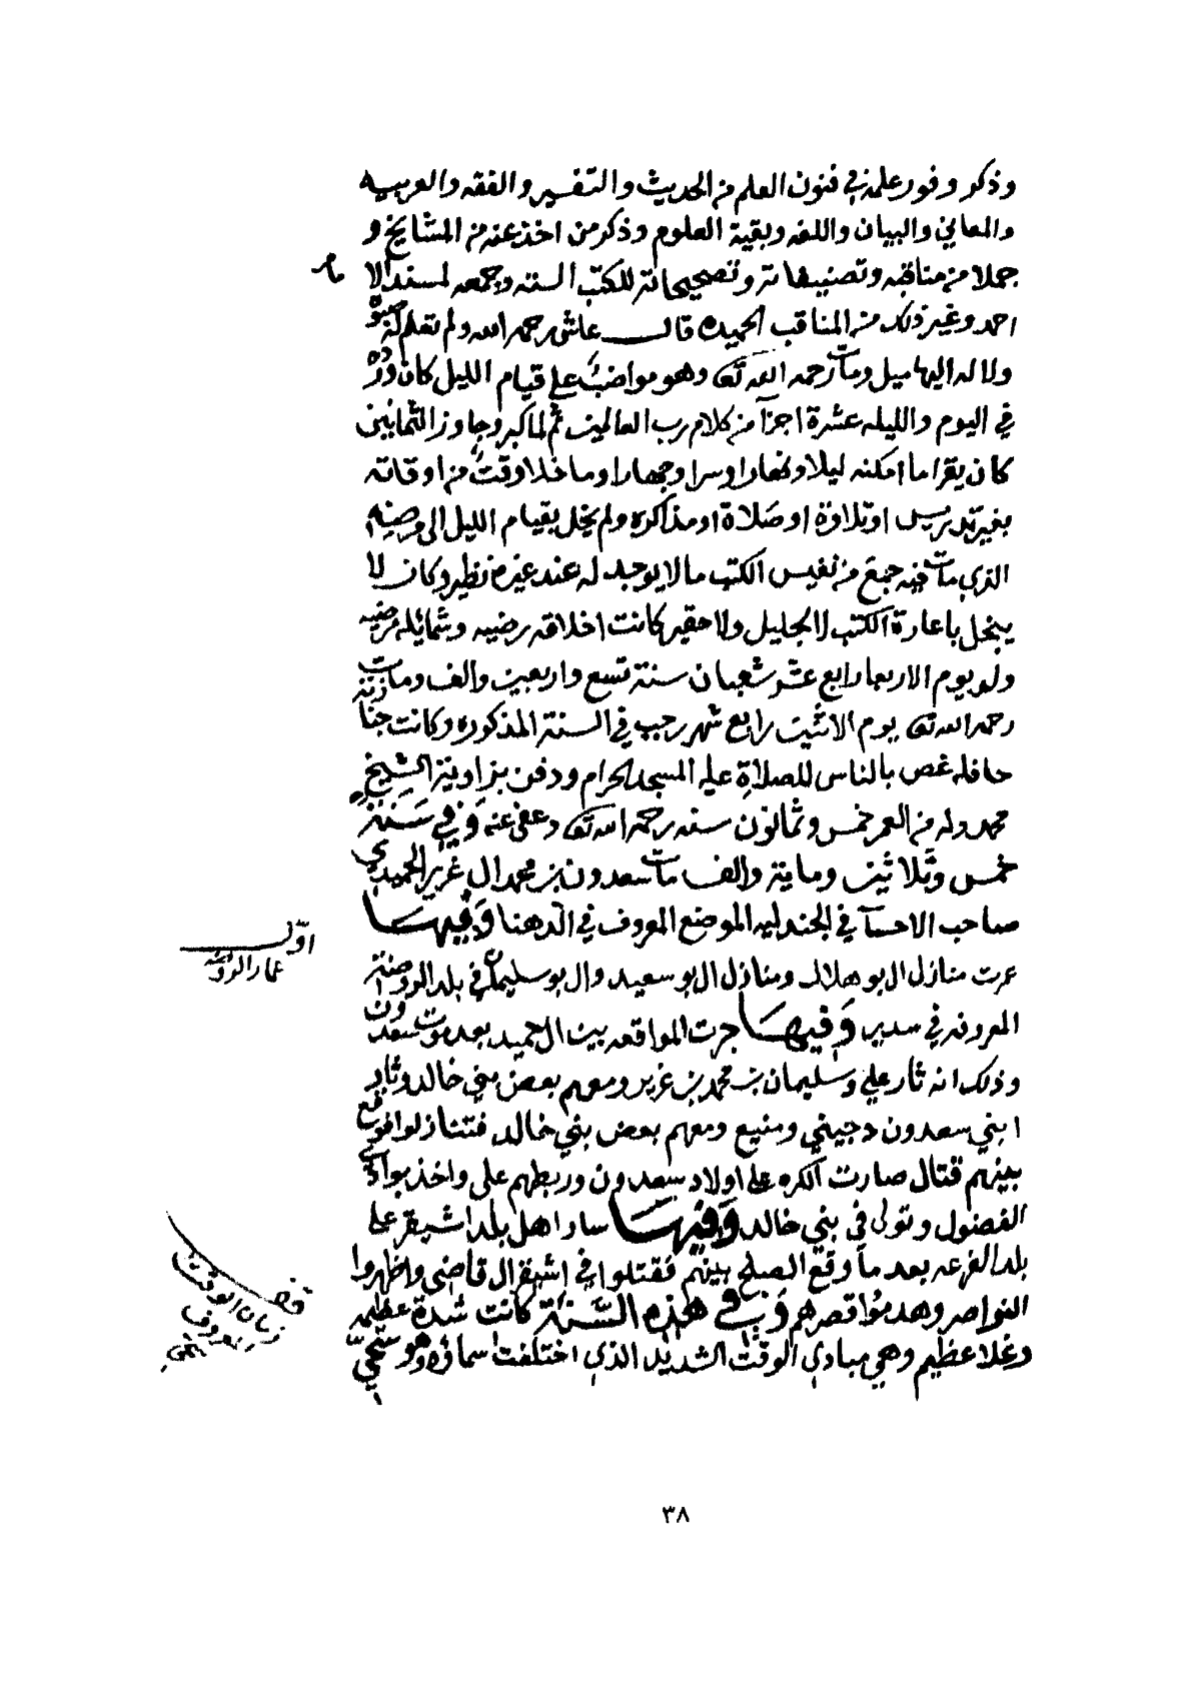 وذكر وفور علمه في فنون العلم من الحديث والتفسير والفقه والعربيه
والمعاني والبيان واللغه وبقية العلوم وذكر من اخذ عنه من المشايخ و
جملا من مناقبه وتصنيفاته وتصحيحاته للكتب السته وجمعه لمسند الا
مام
احمد وغير ذلك من المناقب الحميده قال عاشى رحمه الله ولم تعلم له صبوة
ولا له اليها ميل ومات رحمه الله تعالى وهو مواضب على قيام الليل كان ورده
في اليوم والليله عشرة اجزآ من كلام رب العالمين ثم لما كبر وجاوز الثمانين
كان يقرا ما امكنه ليلا ونهارا وسرا وجهارا وما خلا وقت من اوقاته
بغير تدريس او تلاوة او صلاة او مذاكره ولم يخل بقيام الليل الى مرضه
الذي مات فيه جمع من نفيس الكتب ما لا يوجد له عند غيره نظير وكان لا
يبخل باعارة الكتب لا لجليل ولا حقير كانت اخلاقه رضيه وشمائله مرضيه
ولد يوم الاربعا رابع عشر شعبان سنة تسع واربعين والف ومات
رحمه الله تعالى يوم الاثنين رابع شهر رجب في السنة المذكوره وكانت جنازته
حافله غص بالناس للصلاة عليه المسجد الحرام ودفن بزاوية الشيخ
محمد وله من العمر خمس وثمانون سنه رحمه الله تعالى وعفى عنه وفي سنة
خمس وثلاثين وماية والف مات سعدون بن محمد ال غرير الحميدي
صاحب الاحسآ في الجندليه الموضع المعروف في الدهنا وفيها
اول
عمار الروضه
عمرت منازل ال بو هلال ومنازل ال بو سعيد وال بو سليمان في بلد الروضة
المعروفه في سدير وفيها جرت المواقعه بين ال حميد بعد موت سعدون
وذلك انه ثار علي وسليمان بن محمد بن غرير ومعهم بعض بني خالد وثار
ابني سعدون دجيني ومنيع ومعهم بعض بني خالد فتنازلوا فوقع
بينهم قتال صارت الكره على اولاد سعدون وربطهم على واخذ بوادي
الفضول وتولى في بني خالد وفيها سار اهل بلد اشيقر على
بلد الفرعه بعد ما وقع الصلح بينهم فقتلوا في اشيقر ال قاضي واظهروا
النواصر وهدموا قصرهم وفي هذه السنة كانت شدة عظيمه
قف
زمان الوقت
المعروف
سحي
وغلا عظيم وهي مبادي الوقت الشديد الذي اختلفت سماؤه وهو سحي
٣٨